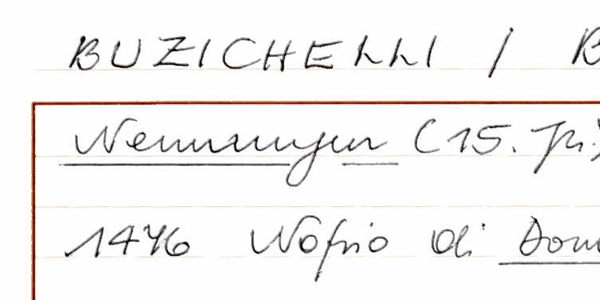 BUZICHELLI / B
Nennungen (15. Jh.)
1476 Nofrio di Dom